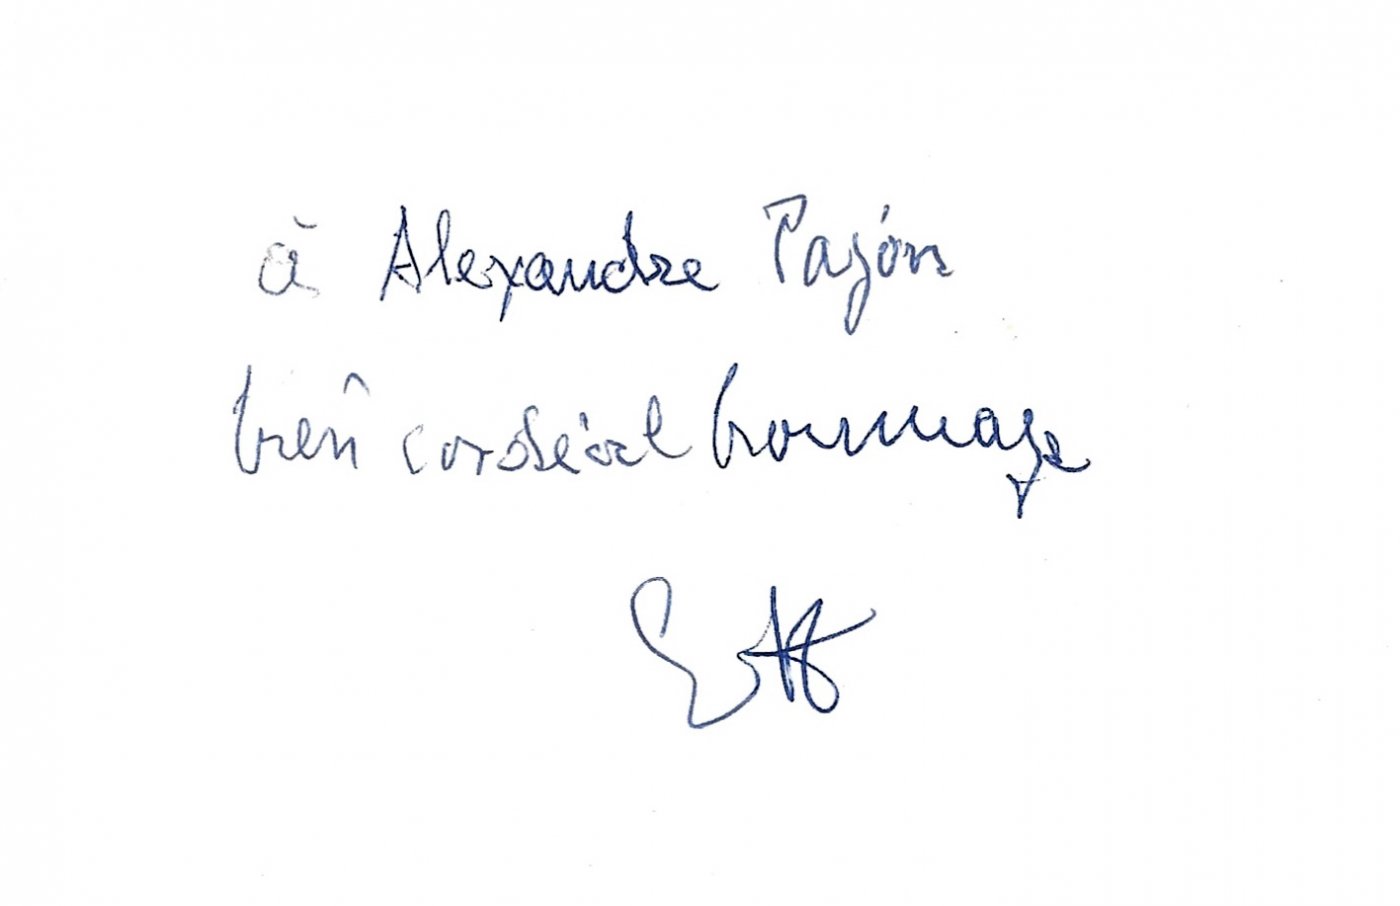 à Alexandre Pajón
bien cordial hommage